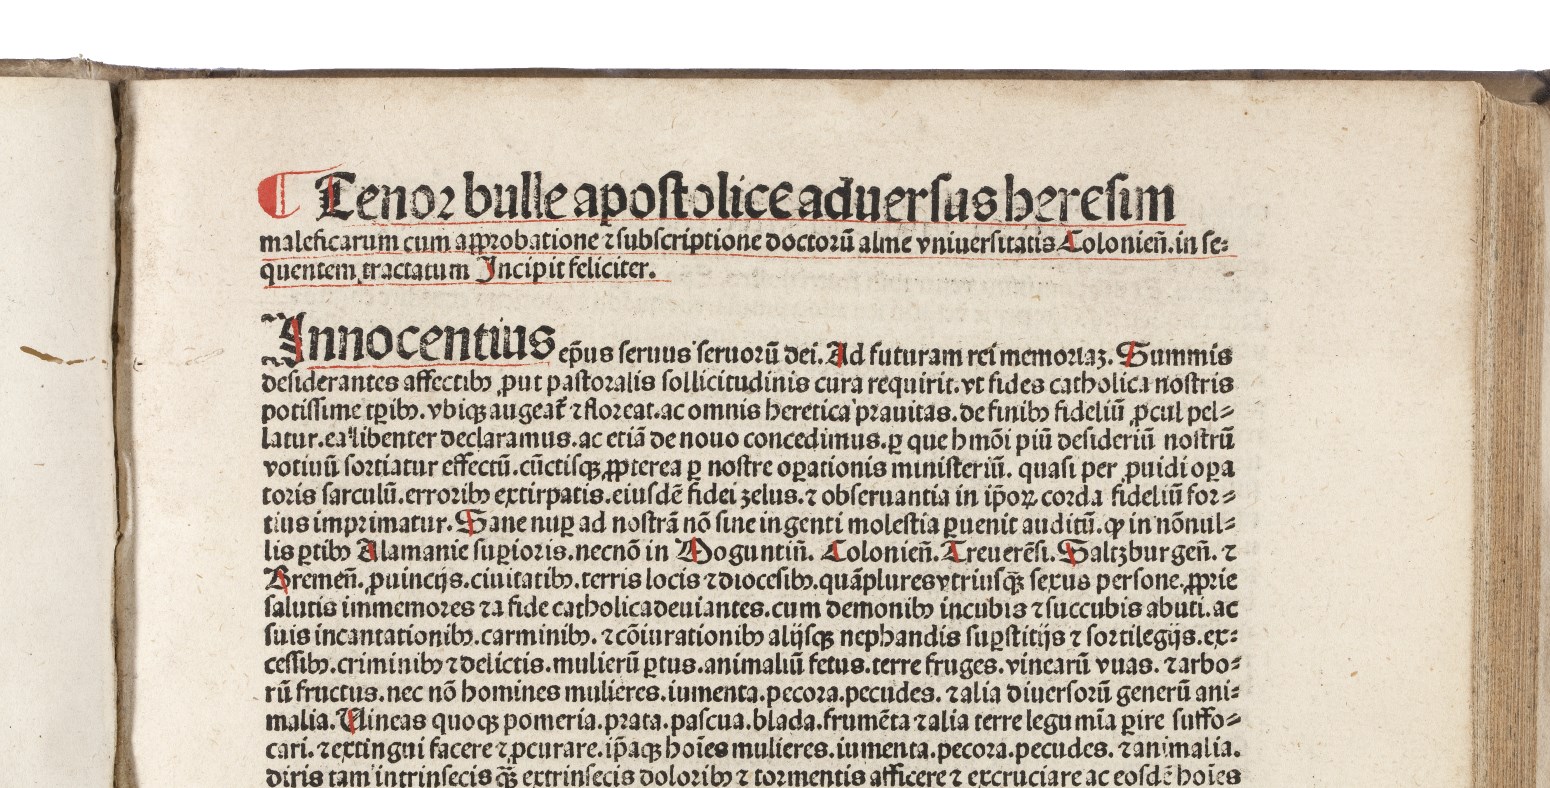 Tenor bulle apostolice aduersus heresim
maleficarum cum approbatione ⁊ subscriptione doctorū alme vniuersitatis Colonieñ. in se⸗
quentem tractatum Incipit feliciter.
Innocentius ep̄us seruus seruorū dei. Ad futuram rei memoriaꝫ. Summis
desiderantes affectibꝰ ꝓut pastoralis sollicitudinis cura requirit. vt fides catholica nostris
potissime tꝑibꝰ. vbiqꝫ augeat̄ ⁊ floreat. ac omnis heretica prauitas. de finibꝰ fideliū ꝓcul pel⸗
latur. ea libenter declaramus. ac etiā de nouo concedimus. ꝑ que hmōi piū desideriū nostrū
votiuū sortiatur effectū. cūctisqꝫ ꝓpterea ꝑ nostre oꝑationis ministeriū. quasi per ꝓuidi oꝑa
toris sarculū. erroribꝰ extirpatis. eiusdē fidei zelus. ⁊ obseruantia in ip̄oꝝ corda fideliū for⸗
tius imprimatur. Sane nuꝑ ad nostrā nō sine ingenti molestia ꝑuenit auditū. ꝙ in nōnul⸗
lis ꝑtibꝰ Alamanie suꝑioris. necnō in Moguntiñ. Colonieñ. Treuerēsi. Saltzburgeñ. ⁊
Bremeñ. ꝓuincijs. ciuitatibꝰ. terris locis ⁊ diocesibꝰ. quāplures vtriusqꝫ sexus persone. ꝓprie
salutis immemores ⁊ a fide catholica deuiantes. cum demonibꝰ incubis ⁊ succubis abuti. ac
suis incantationibꝰ. carminibꝰ. ⁊ cōiurationibꝰ alijsqꝫ nephandis suꝑstitijs ⁊ sortilegijs. ex⸗
cessibꝰ. criminibꝰ ⁊ delictis. mulierū ꝑtus. animaliū fetus. terre fruges. vinearū vuas. ⁊ arbo⸗
rū fructus. nec nō homines mulieres. iumenta. pecora. pecudes. ⁊ alia diuersorū generū ani⸗
malia. Vineas quoqꝫ pomeria. prata. pascua. blada. frumēta ⁊ alia terre legumīa ꝑire suffo⸗
cari. ⁊ extingui facere ⁊ ꝓcurare. ip̄aqꝫ hoīes mulieres. iumenta. pecora. pecudes. ⁊ animalia.
diris tam intrinsecis qꝫ̄ extrinsecis doloribꝰ ⁊ tormentis afficere ⁊ excruciare ac eosdē hoīes